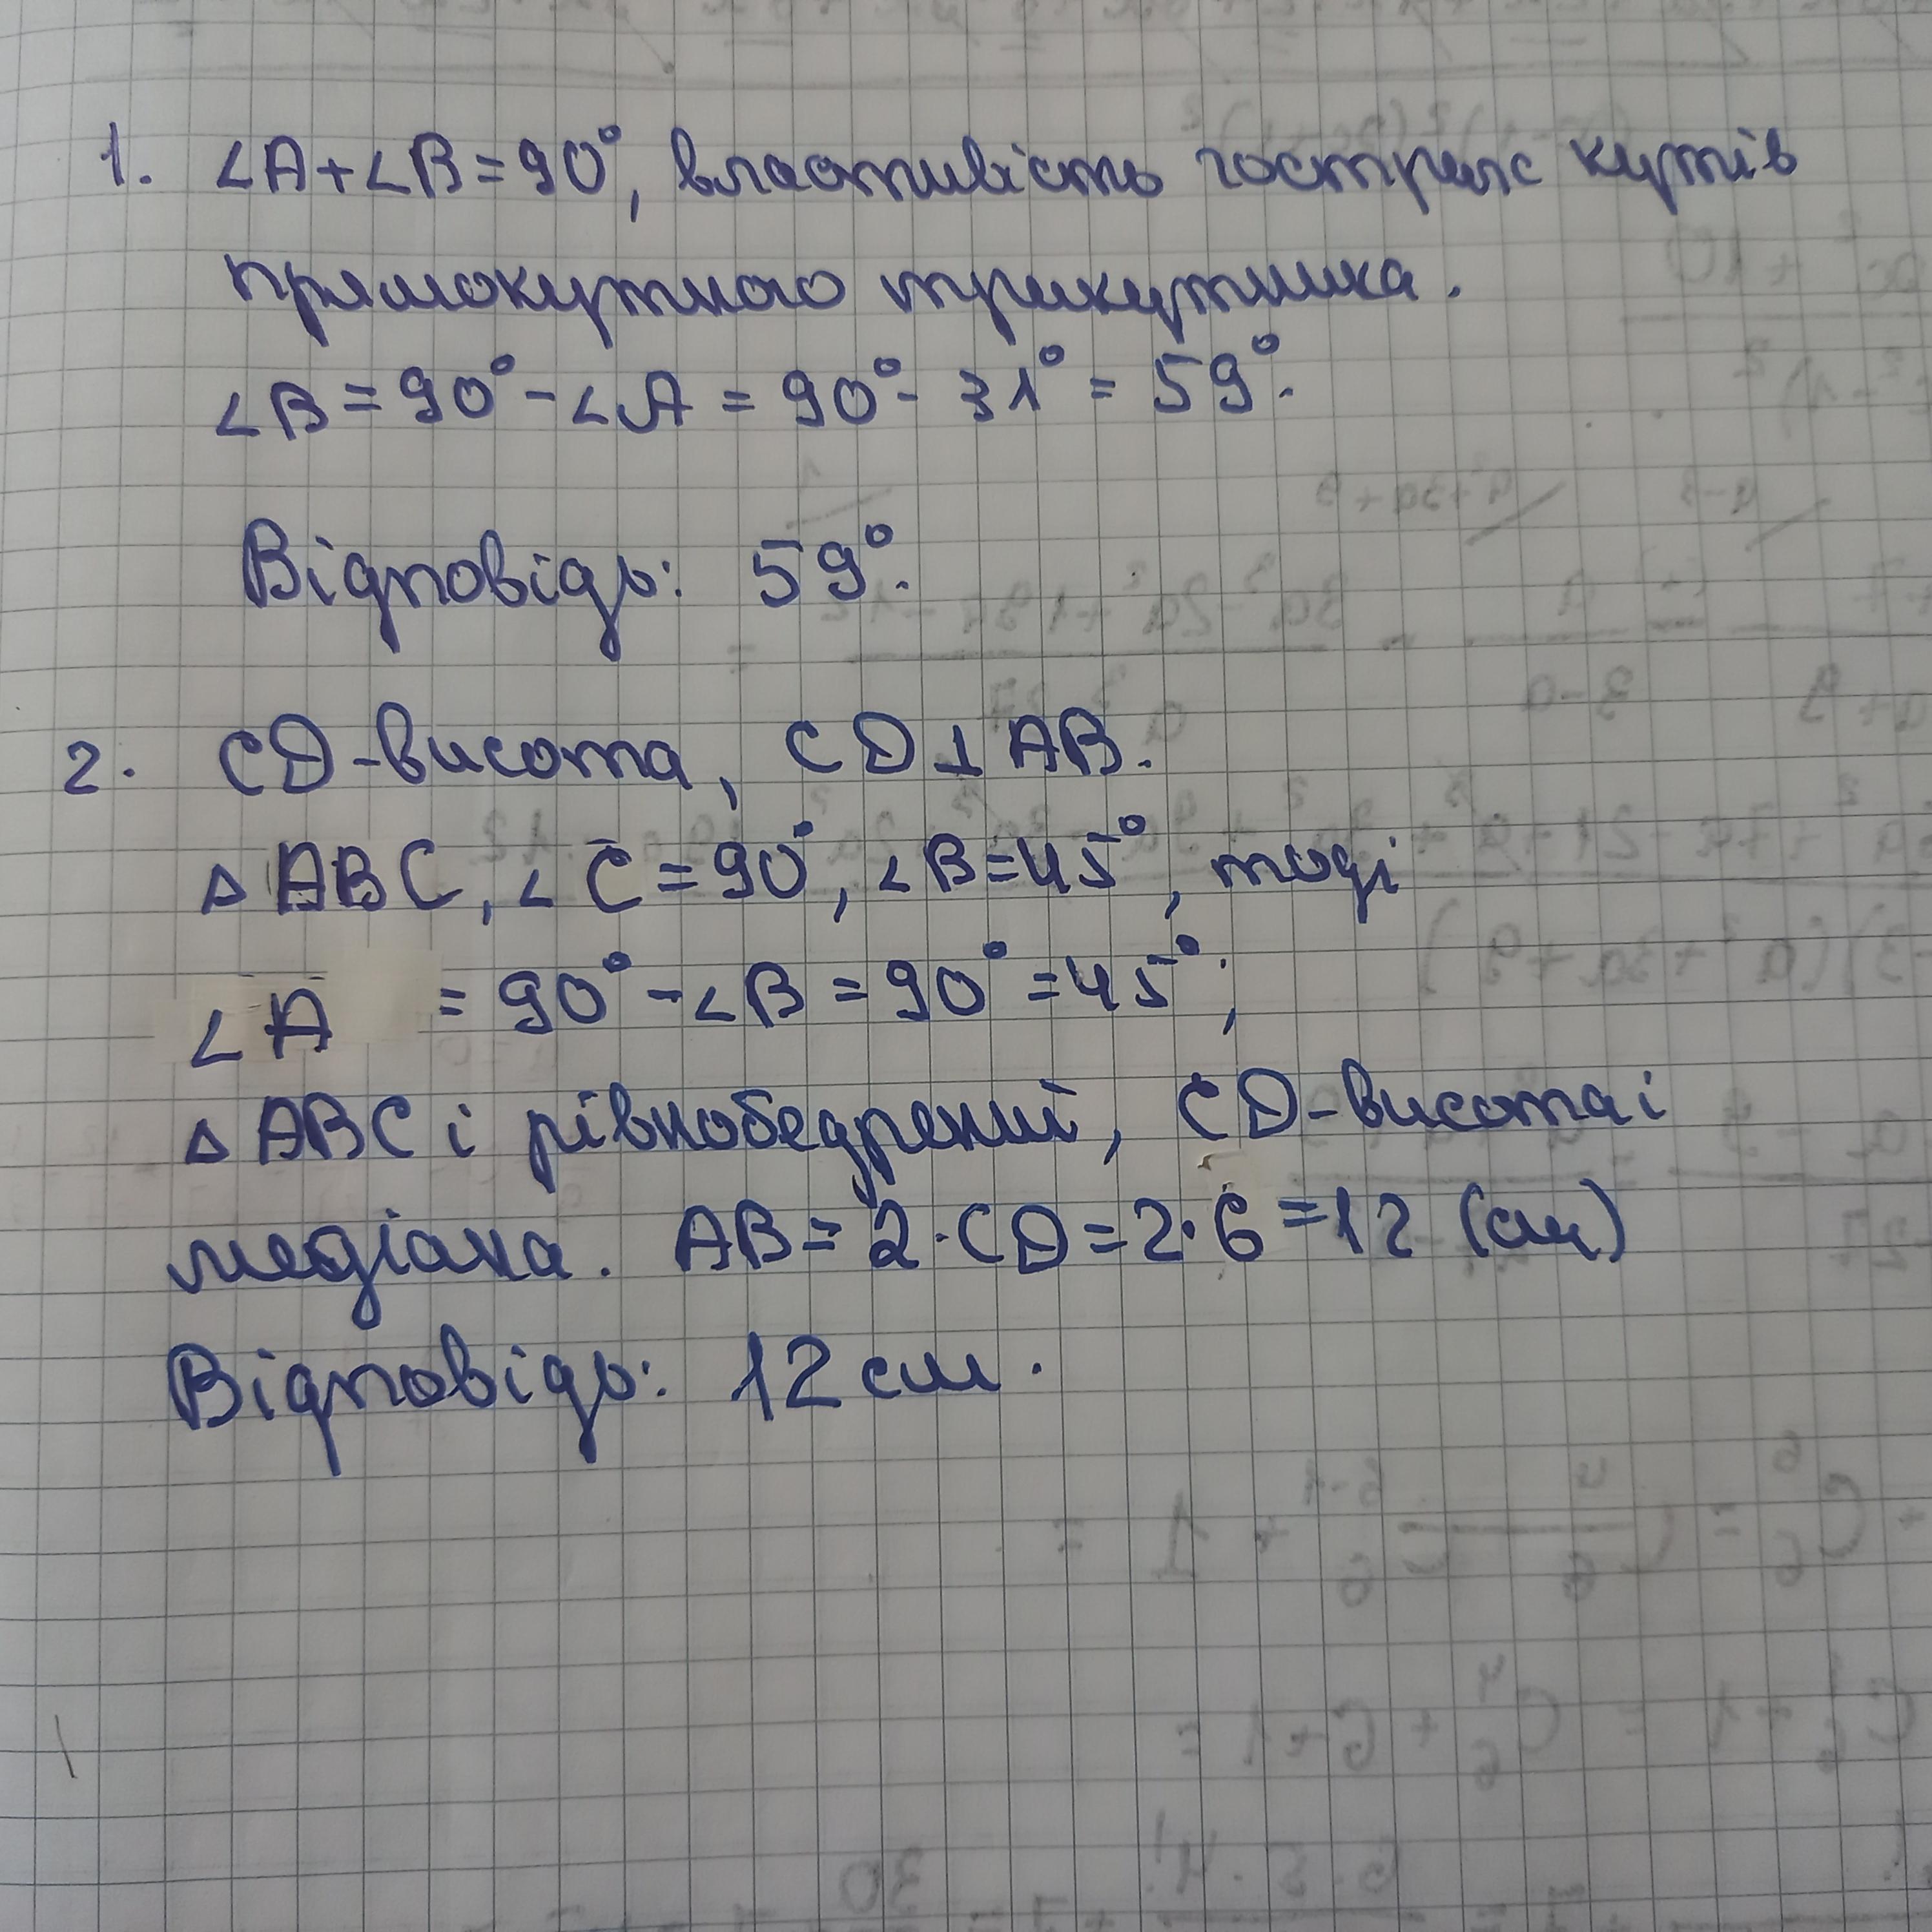 1. ∠A+∠B=90°, властивість гострих кутів
прямокутного трикутника.
∠B=90°-∠A=90°-31°=59°.
Відповідь: 59°.
2. CD-висота, CD⊥AB.
△ABC, ∠C=90°, ∠B=45°, тоді
∠A =90°-∠B=90°=45°;
△ABC і рівнобедрений, CD-висота і
медіана. AB=2·CD=2·6=12 (см)
Відповідь: 12 см.